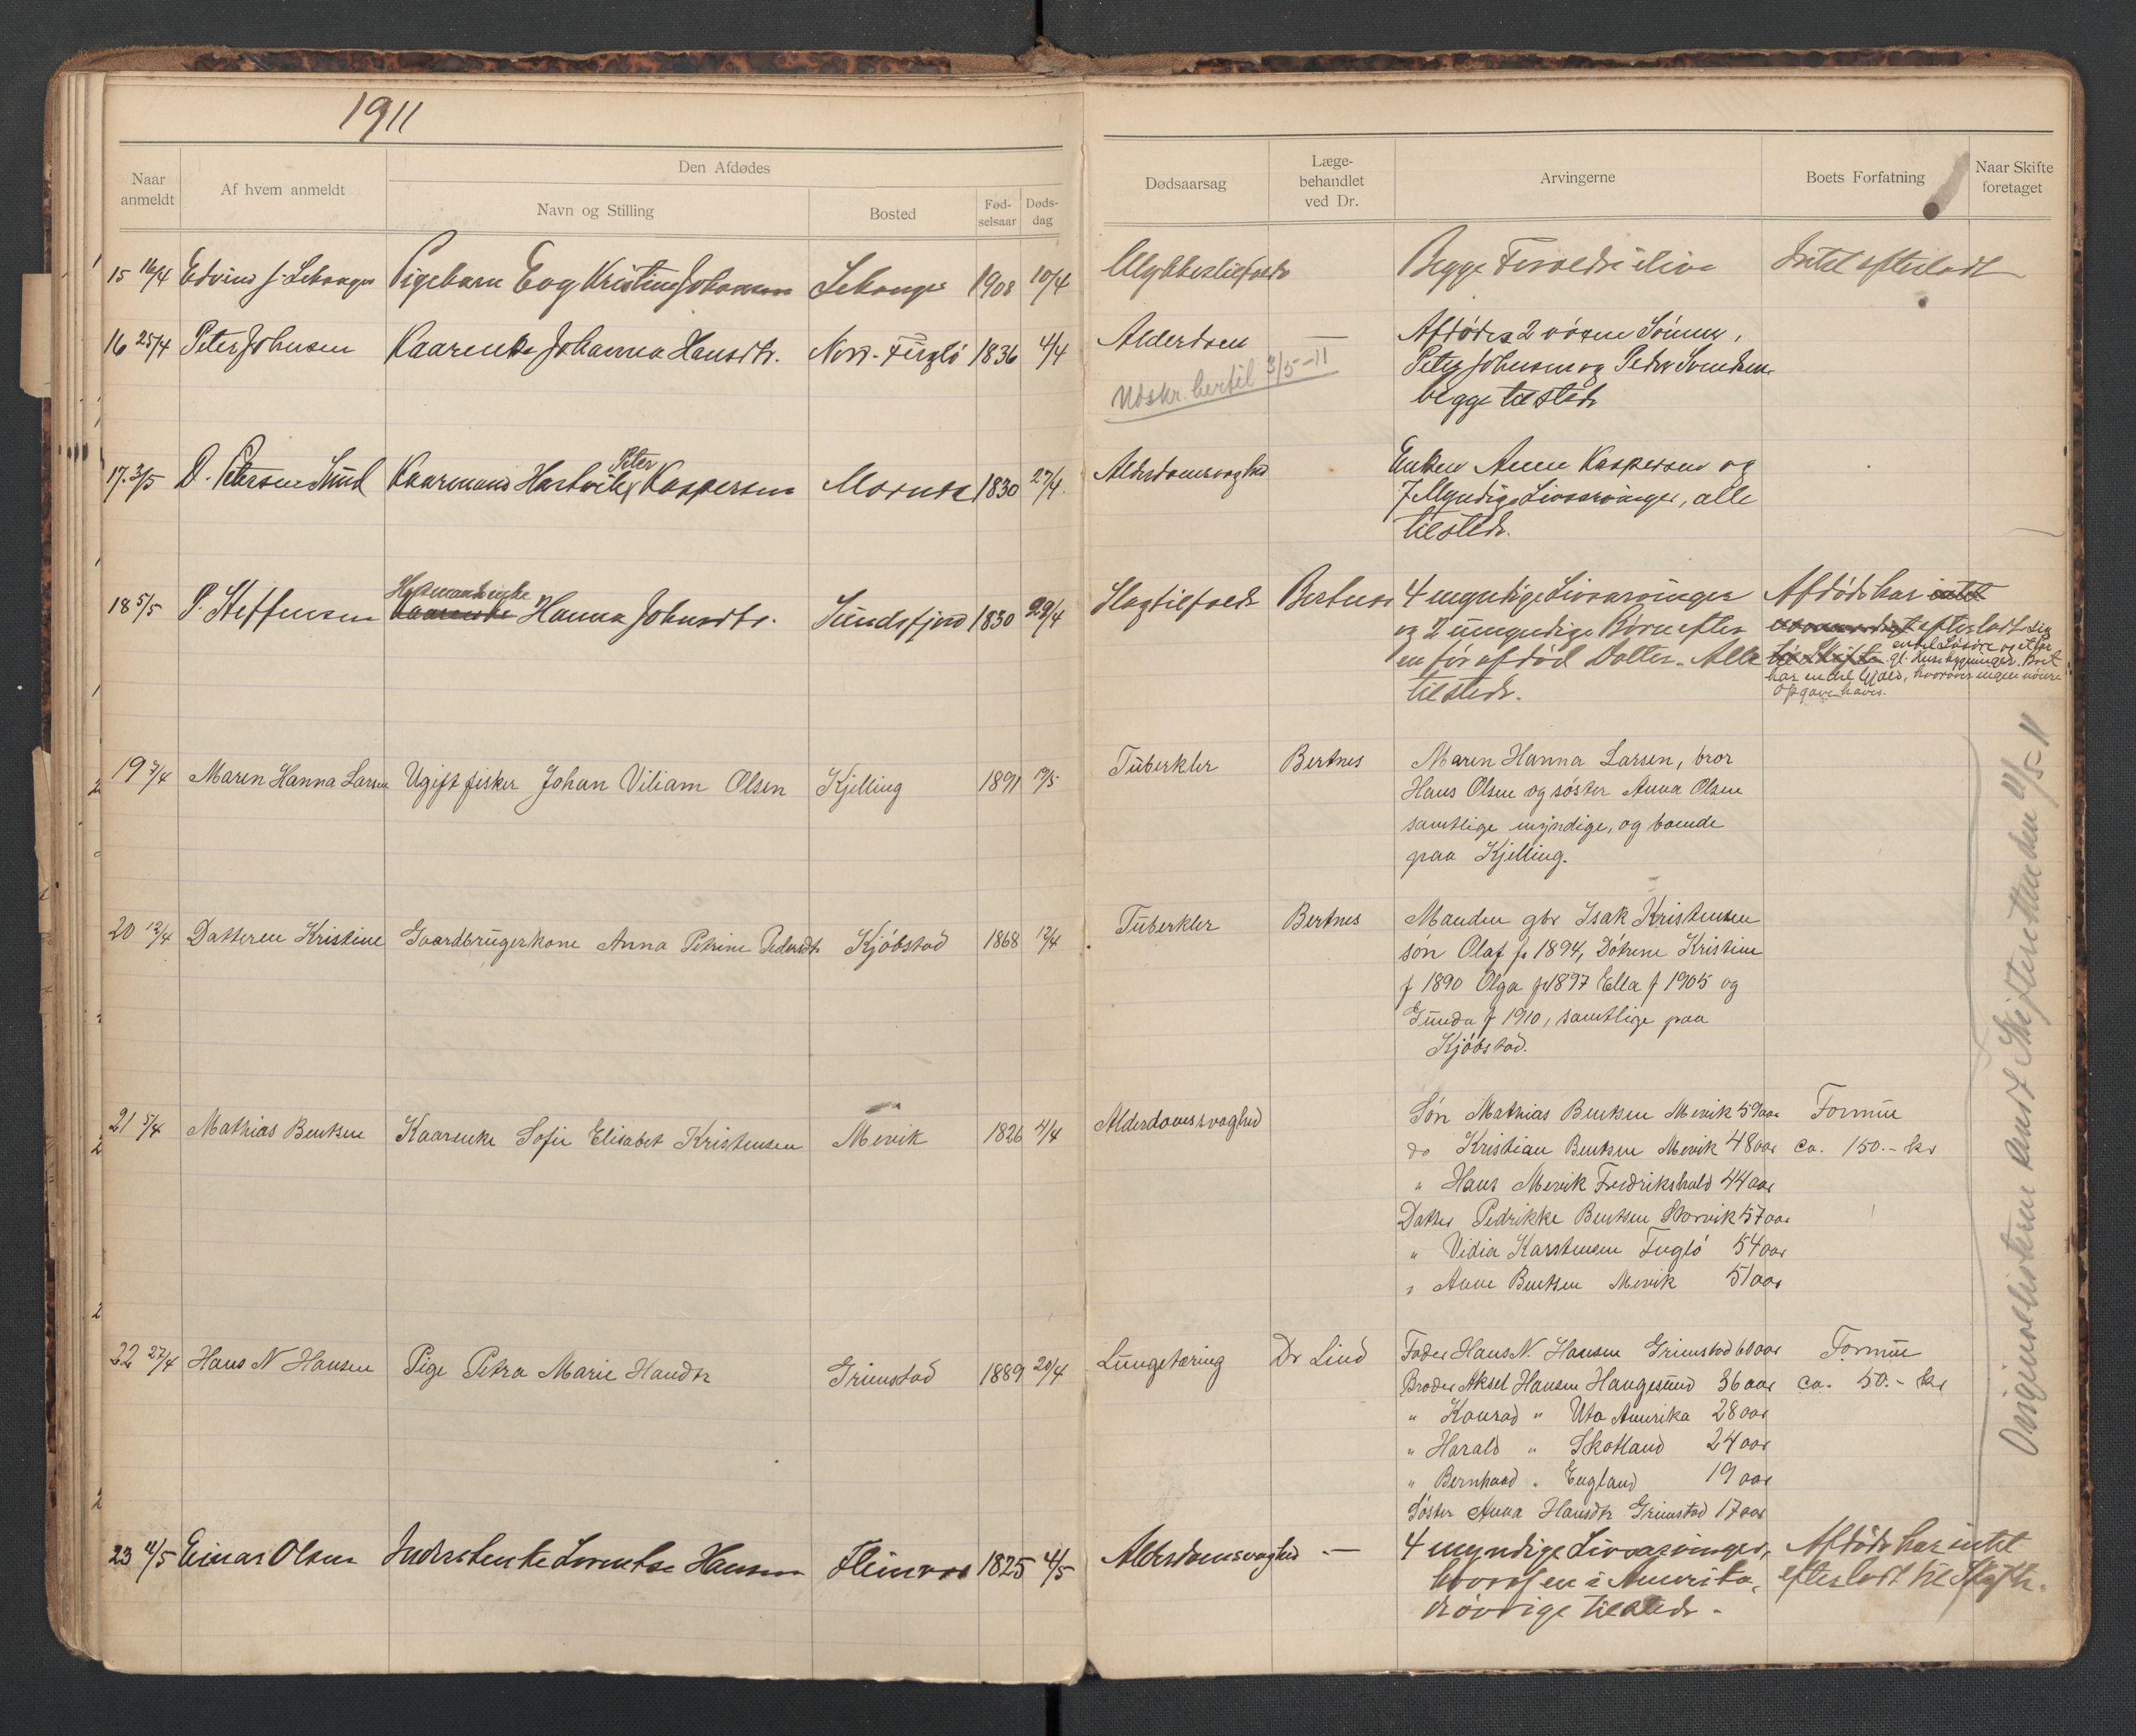 1911
Naar anmeldt
Af hvem anmeldt
Den Afdødes
Navn og Stilling
Bosted
Fød-selsaar
Døds-dag
Dødsaarsag
Læge-behandlet ved Dr.
Arvingerne
Boets Forfatning
Naar Skifte foretaget
15 16/4 Edvin J. Selvaager Pigebarn Kristine Johansen 1908 10/4 Ulykkestilfælde Begge Forældre i live Intet efterladt
16 25/4 Peter Johnsen Kaarenke Johanna Hansdtr. Nord-Fugló 1836 4/4 Alderdom — Afdødes 2 voxne Sönner,
Peter Johnsen og Peder Svendsen
begge tilstede
Udskr. hertil 3/5-11
17. 3/5 D. Petersen Sund Kaarmand Hartvik Peter Kaspersen 1830 27/4 Alderdomsvaghed Enken Anne Kaspersen og
7 Myndige Livsarvinger, alle
tilstede.
18 5/5 P. Steffensen Husmandsenke Kaarenke Hanna Johnsdtr. Sundsfjord 1830 29/4 Slagtilfælde Bertnes 4 myndige Livsarvinger Afdöde har intet
og 2 umyndige Börn efter efterladt sig
en för afdöd Datter. Alle til Skifte endel Lösöre og et Par gl. Husebygninger. Boet
tilstede. har endel Gjæld, hvorover ingen nöiere
Opgave haves.
19 7/4 Maren Hanna Larsen Ugift fisker Johan Viliam Olsen Kjelling 1891 Tuberkler Bertnes Maren Hanna Larsen, bror
Hans Olsen og søster Anna Olsen
samtlige myndige, og boende
paa Kjelling.
20 12/4 Datteren Kristine Gaardbrugerkone Anna Petrine Pedersdtr Kjøbstad 1868 12/4 Tuberkler Bertnes Manden gbr Isak Kristensen
søn Olaf f. 1894, Døtrene Kristine
f 1890 Olga f 1897 Ella f 1905 og
Gunda f 1910, samtlige paa
Kjøbstad.
21 5/4 Mathias Bentsen Kaarenke Sofie Elisabet Kristensen Mevik 1826 4/4 Alderdomssvaghed Søn Mathias Bentsen Mevik 59 aar Formue
do Kristian Bentsen Mevik 48 aar ca. 150.- kr
" Hans Mevik Fredrikshald 44 aar
Datter Pedrikke Bentsen Storvik 57 aar
" Vidia Karstensen Fugló 54 aar
" Anne Bentsen Mevik 51 aar
22 27/4 Hans N Hansen Pige Petra Marie Hansdtr Grimstad 1889 20/4 Lungetæring Dr Lind Fader Hans N. Hansen Grimstad 60 aar Formue
Broder Aksel Hansen Haugesund 36 aar ca. 50.- kr
" Konrad " Uta Amerika 28 aar
" Harald " Skotland 24 aar
" Bernhard " England 19 aar
Søster Anna Hansdtr Grimstad 17 aar
23 11/5 Einar Olsen Inderstenke Lorentse Hansen 1825 4/5 Alderdomsvaghed — 4 myndige Livsarvinger, Afdöde har intet
hvoraf en i Amerika, efterladt til Skifte.
de övrige tilstede.
Originallisterne sendt Skifteretten den 11/5-11